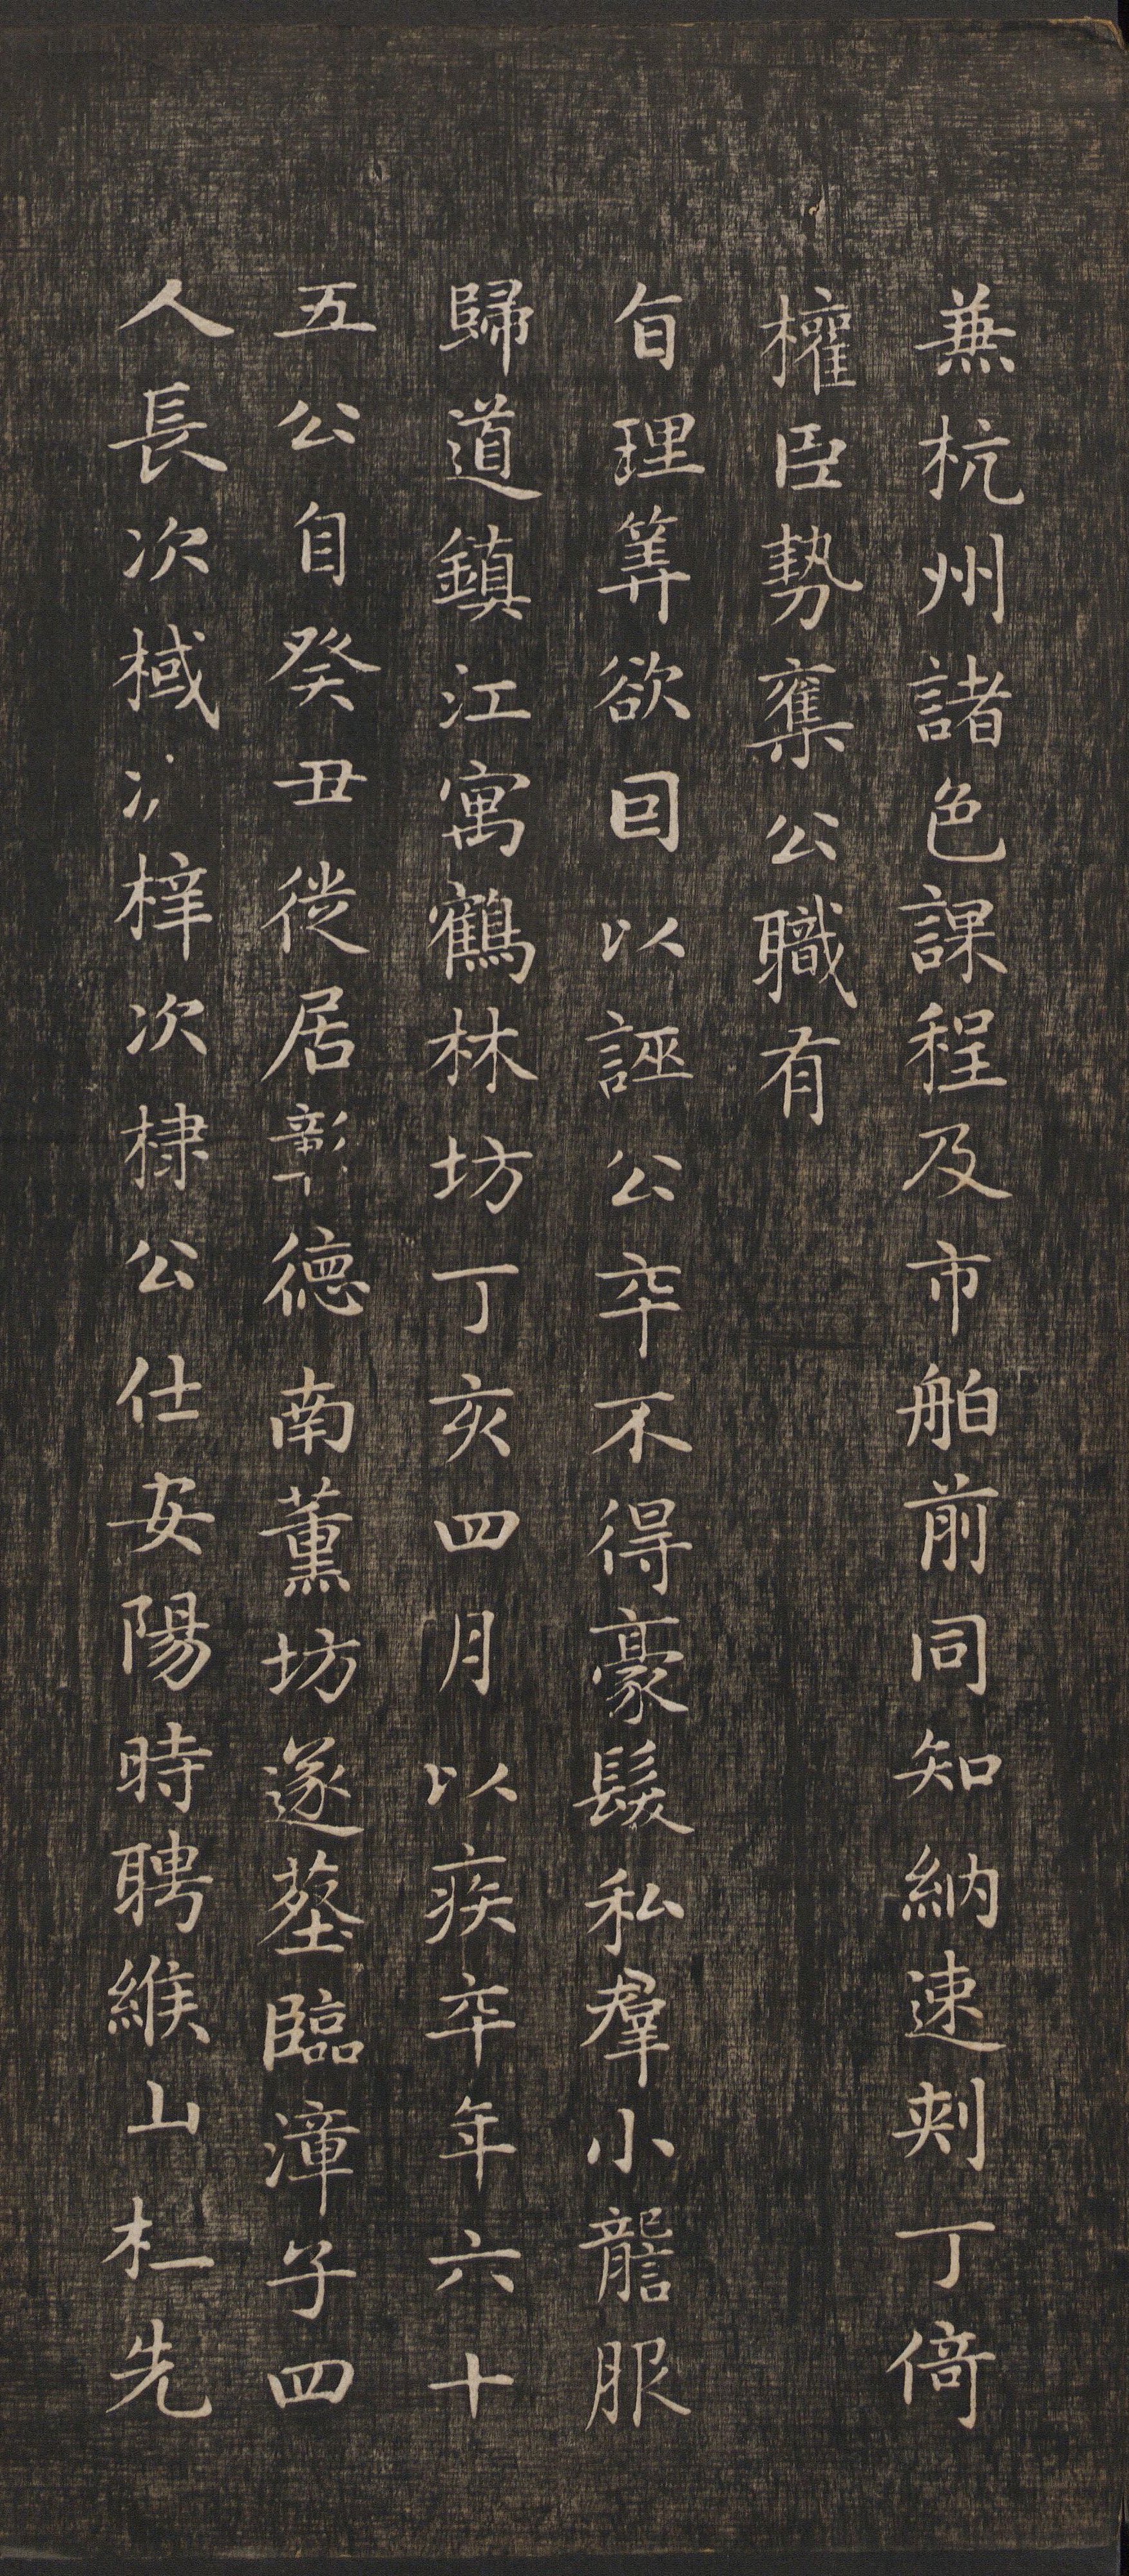 兼杭州諸色課程及市舶前同知納速剌丁倚
權臣勢奪公職有
旨理筭欲回以誣公卒不得豪髮私羣小讋服
歸道鎮江寓鶴林坊丁亥四月以疾卒年六十
五公自癸丑徙居彰德南薰坊遂塟臨漳子四
人長次棫次梓次棣公仕安陽時聘緱山杜先